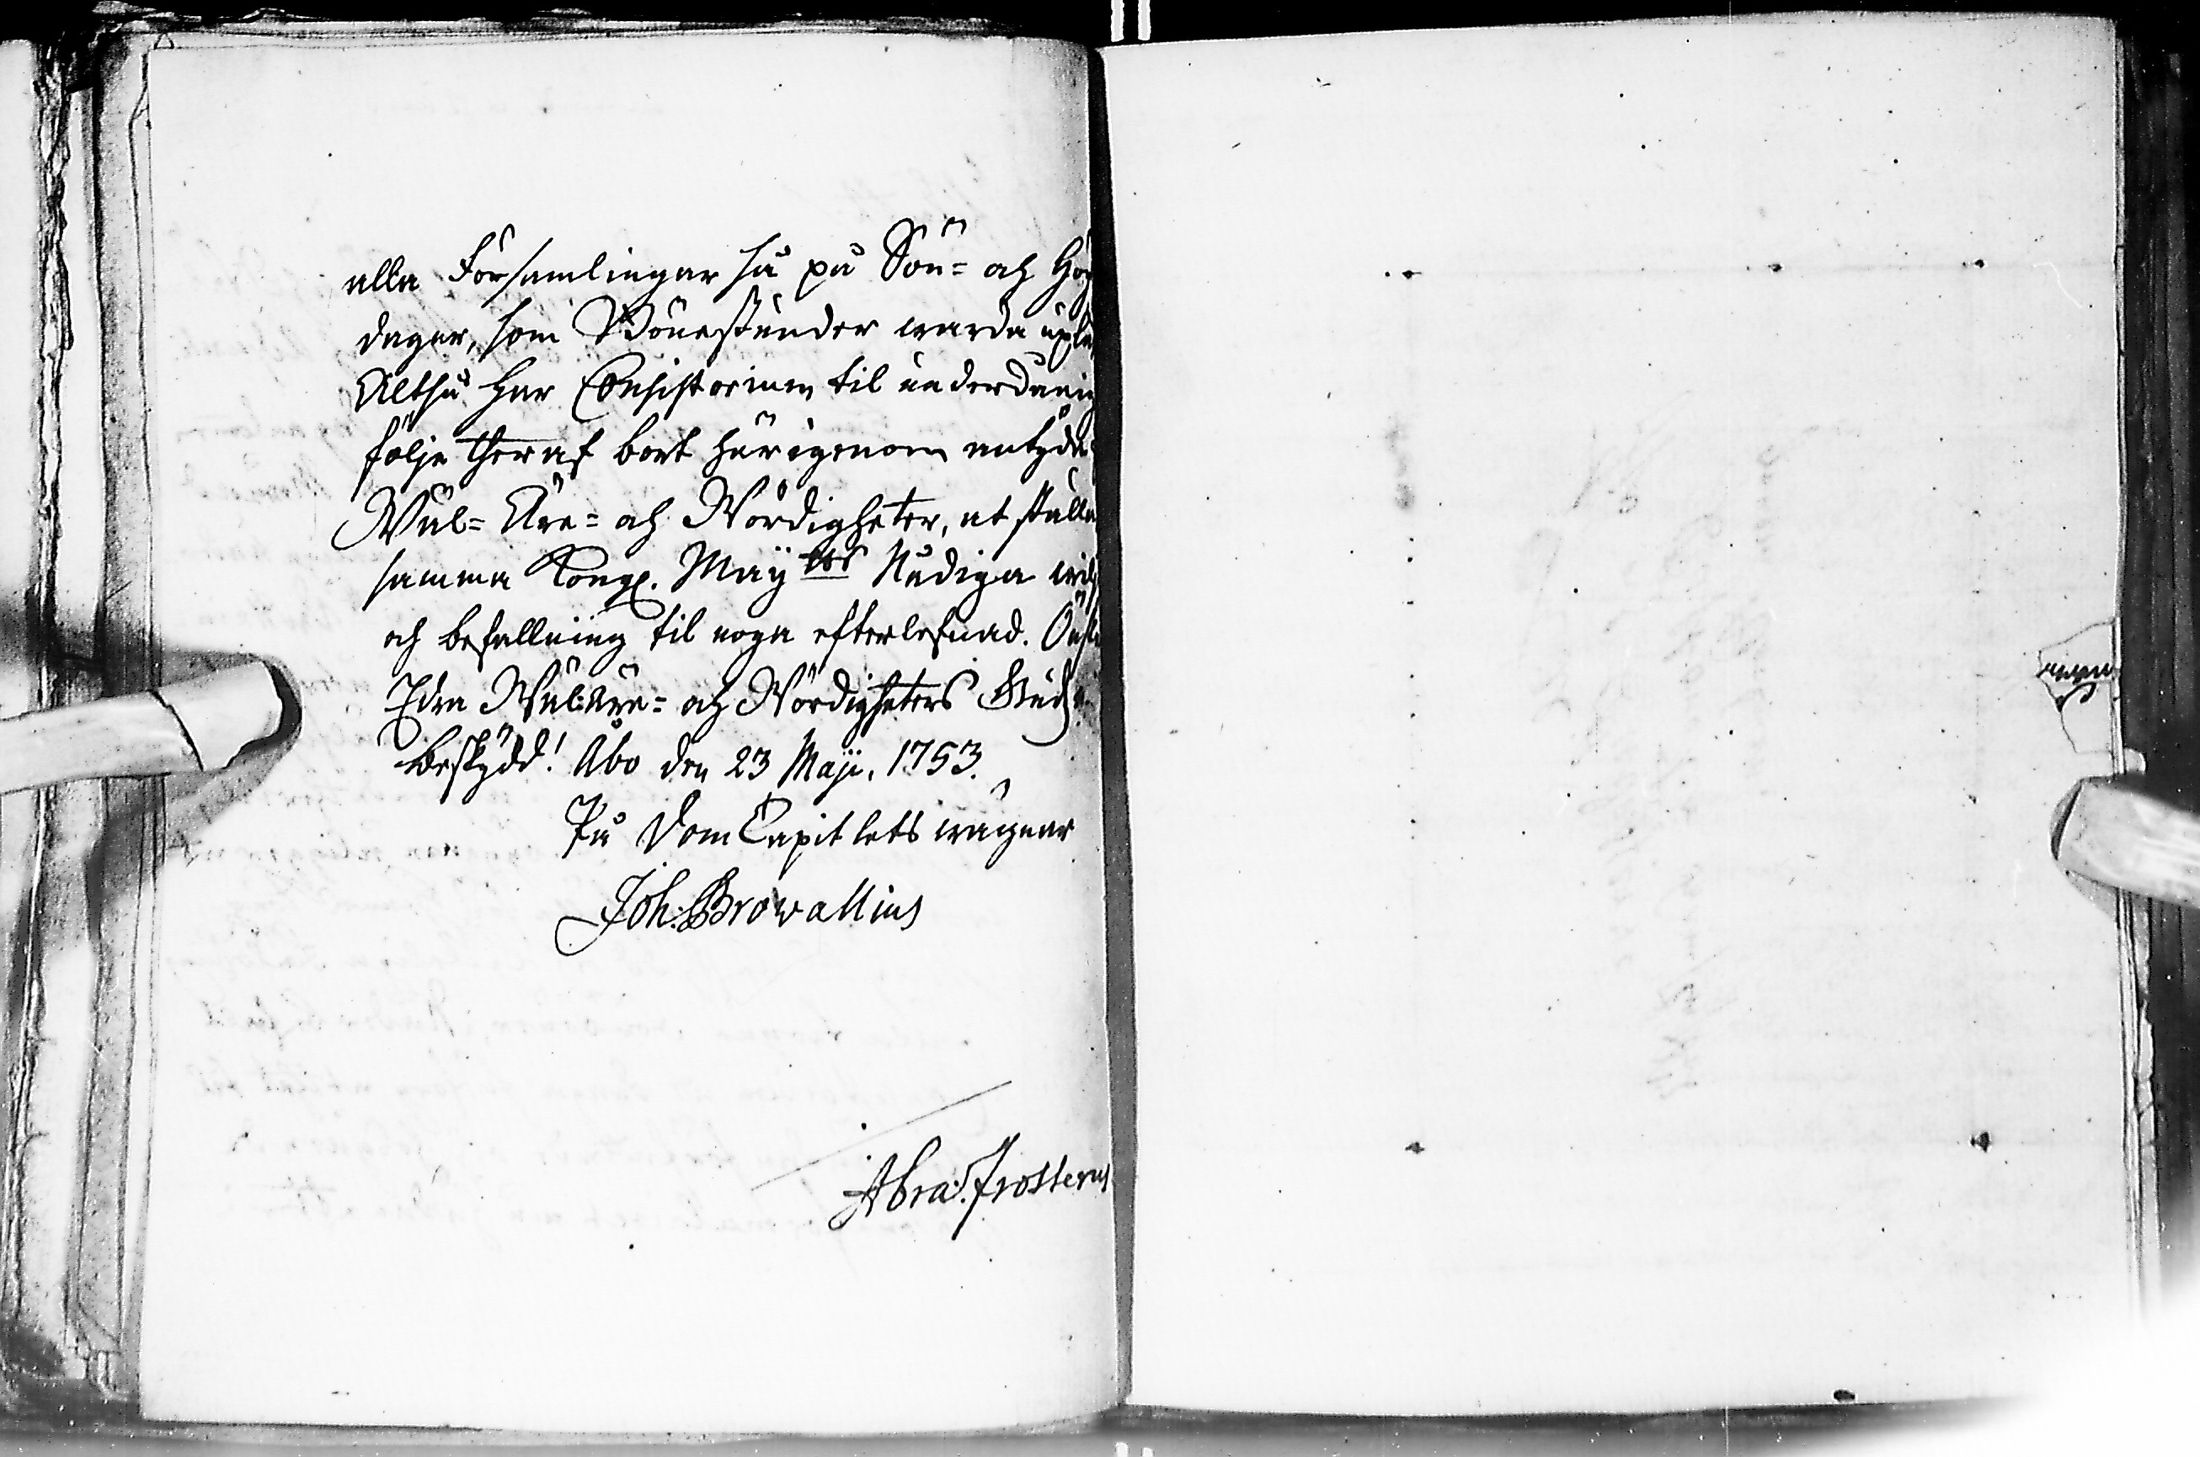 alla Församlingar så på Sön= och Hög
dagar, som Bönestunder warda uplä
Altså har Consistorium til underdånig
följe theraf bort härigenom antyda
Wäl= Äre= och Wördigheter, at ställa
samma Kongl. Maÿtts Nådiga wil
och befallning til noga efterlefnad. Önsk
Edra Wäl: Äre= och Wördigheters Guds
beskydd! Åbo den 23 Maji. 1753.
På DomCapitlets wägnar
Joh: Browallius
Abra: Frosterus